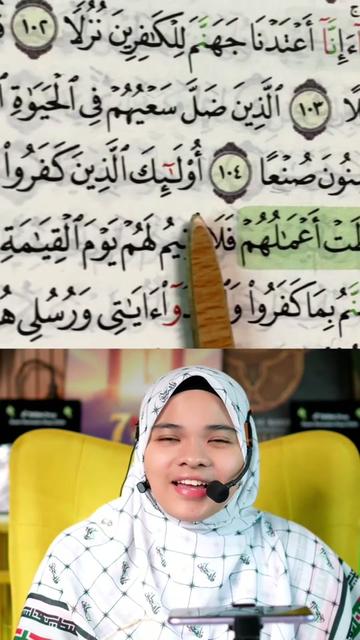 إِنَّآ أَعْتَدْنَا جَهَنَّمَ لِلْكَٰفِرِينَ نُزُلًا ١٠٢
١٠٣ ٱلَّذِينَ ضَلَّ سَعْيُهُمْ فِى ٱلْحَيَوٰةِ
صُنْعًا ١٠٤ أُو۟لَٰٓئِكَ ٱلَّذِينَ كَفَرُوا۟
أَعْمَٰلُهُمْ فَلَا لَهُمْ يَوْمَ ٱلْقِيَٰمَةِ
بِمَا كَفَرُوا۟ ءَايَٰتِى وَرُسُلِى